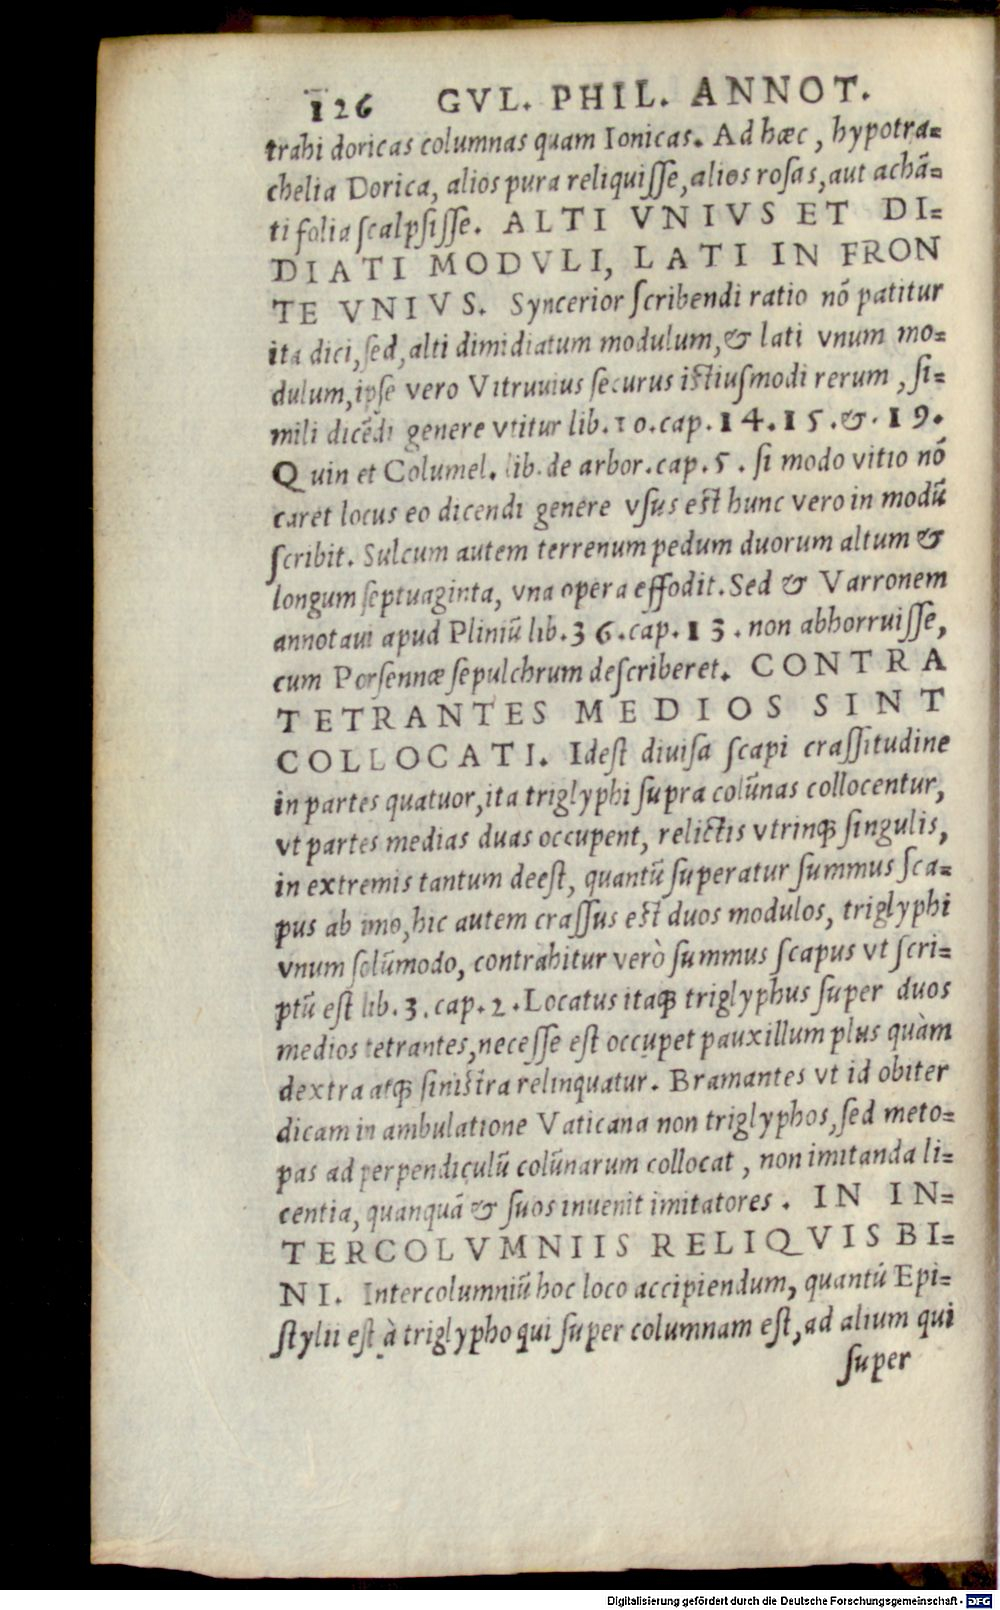 126 GVL. PHIL. ANNOT.
trahi doricas columnas quam Ionicas. Ad hæc, hypotra=
chelia Dorica, alios pura reliquiſſe, alios roſas, aut achã=
ti folia ſcalpſiſſe. ALTI VNIVS ET DI=
DIATI MODVLI, LATI IN FRON
TE VNIVS. Syncerior ſcribendi ratio nõ patitur
ita dici, ſed, alti dimidiatum modulum, & lati vnum mo=
dulum, ipſe vero Vitruuius ſecurus iſtiuſmodi rerum, ſi=
mili dicẽdi genere vtitur lib. 10. cap. 14. 15. &. 19.
Quin et Columel. lib. de arbor. cap. 5. ſi modo vitio nõ
caret locus eo dicendi genere vſus eſt hunc vero in modũ
ſcribit. Sulcum autem terrenum pedum duorum altum &
longum ſeptuaginta, vna opera effodit. Sed & Varronem
annotaui apud Pliniũ lib. 36. cap. 13. non abhorruiſſe,
cum Porſennæ ſepulchrum deſcriberet. CONTRA
TETRANTES MEDIOS SINT
COLLOCATI. Ideſt diuiſa ſcapi craſſitudine
in partes quatuor, ita triglyphi ſupra colũnas collocentur,
vt partes medias duas occupent, relictis vtrinq; ſingulis,
in extremis tantum deeſt, quantũ ſuperatur ſummus ſca=
pus ab imo, hic autem craſſus eſt duos modulos, triglyphi
vnum ſolũmodo, contrahitur verò ſummus ſcapus vt ſcri=
ptũ eſt lib. 3. cap. 2. Locatus itaq; triglyphus ſuper duos
medios tetrantes, neceſſe eſt occupet pauxillum plus quàm
dextra atq; ſiniſtra relinquatur. Bramantes vt id obiter
dicam in ambulatione Vaticana non triglyphos, ſed meto=
pas ad perpendiculũ colũnarum collocat, non imitanda li=
centia, quanquã & ſuos inuenit imitatores. IN IN=
TERCOLVMNIIS RELIQVIS BI=
NI. Intercolumniũ hoc loco accipiendum, quantũ Epi=
ſtylii eſt à triglypho qui ſuper columnam eſt, ad alium qui
ſuper
Digitalisierung gefördert durch die Deutsche Forschungsgemeinschaft - DFG